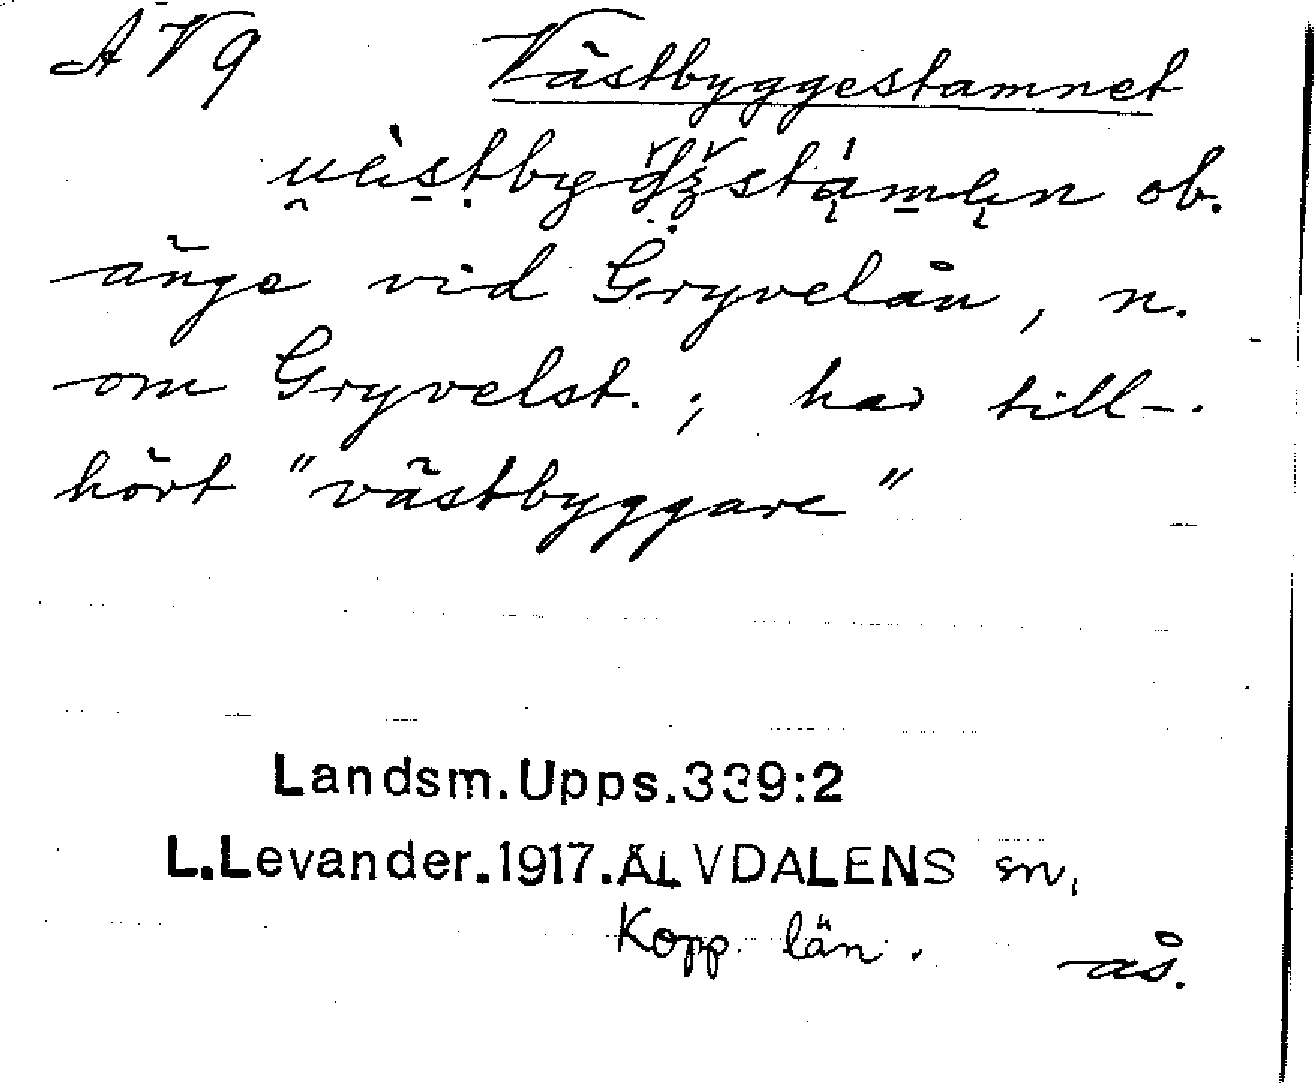 Ä V 9 Västbyggestamnet
ob.
änge vid Gryvelån, n.
om Gryvelst.; har till-
hört "västbyggare"
Landsm.Upps.339:2
L.Levander.1917.ÄLVDALENS sn,
Kopp. län.
ås.